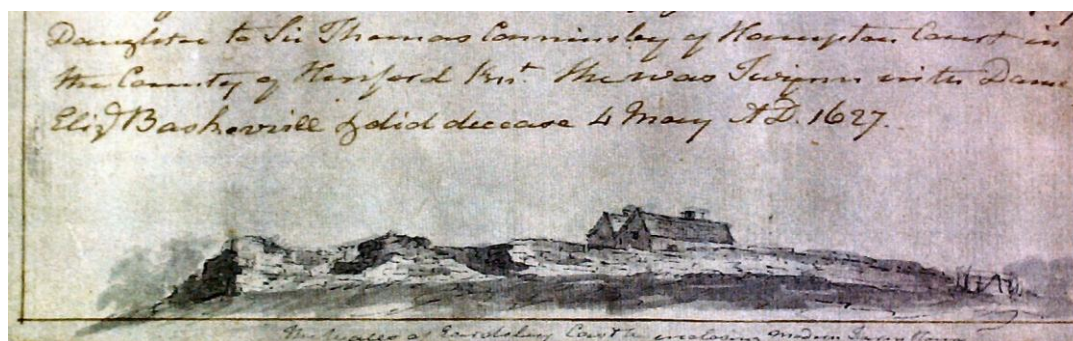 Daughter to Sir Thomas Conninsby of Hampton Court in
the County of Heriford Knt. she was Twynn with Dame
Eliz Baskervill & did decease 4 May A.D. 1627.
The walls of Eardisley Castle inclosing modern Farm House